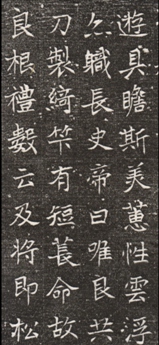 遊具瞻斯美蕙性雲浮
職長史帝曰唯良共
刀製綺有短萇命故
良根禮數云及将即松